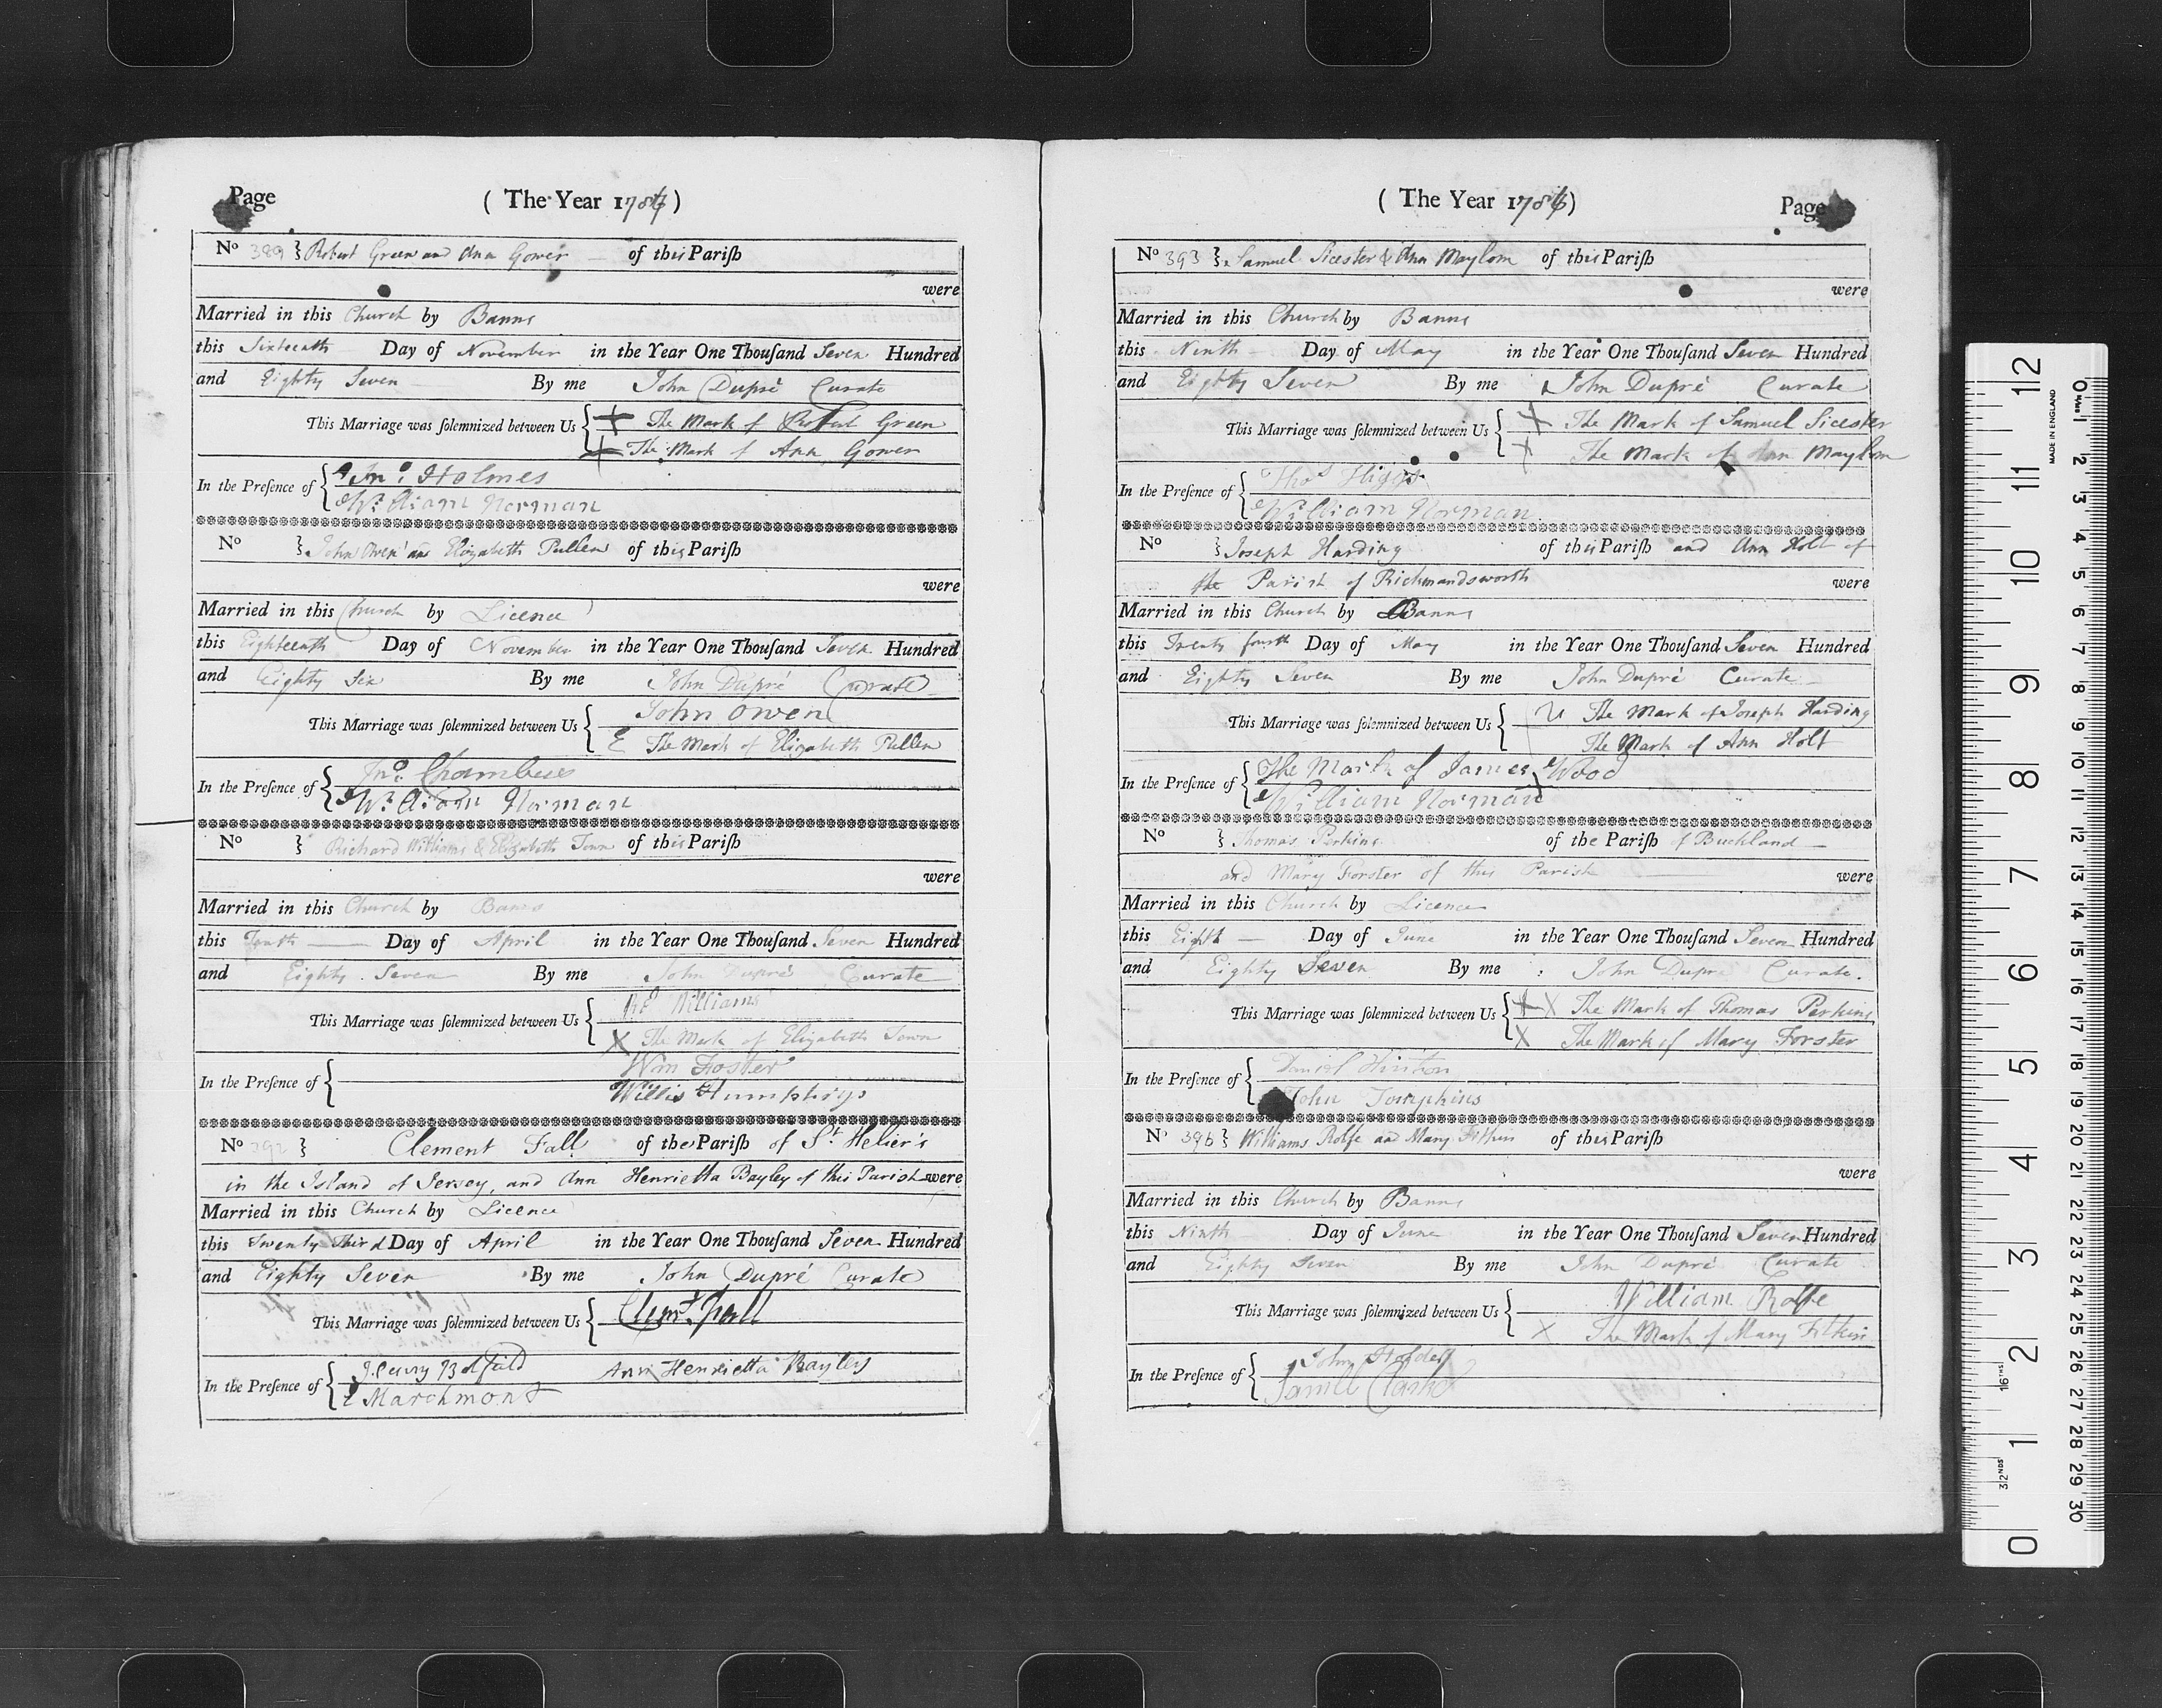 Page
( The Year 1786 )
No 389 } Robert Green and Ann Gower of this Pariſh
were
Married in this Church by Banns
this Sixteenth Day of November in the Year One Thouſand Seven Hundred
and Eighty Seven By me John Dupré Curate
This Marriage was ſolemnized between Us { The Mark of Robert Green
The Mark of Ann Gower
In the Preſence of { Jno. Holmes
William Norman
No } John Owen and Elizabeth Pullen of this Pariſh
were
Married in this Church by Licence
this Eighteenth Day of November in the Year One Thouſand Seven Hundred
and Eighty Six By me John Dupré Curate
This Marriage was ſolemnized between Us { John Owen
E The Mark of Elizabeth Pullen
In the Preſence of { Jno. Chambers
William Norman
No } Richard Williams & Elizabeth Town of this Pariſh
were
Married in this Church by Banns
this Tenth Day of April in the Year One Thouſand Seven Hundred
and Eighty Seven By me John Dupré Curate
This Marriage was ſolemnized between Us { Williams
X The Mark of Elizabeth Town
In the Preſence of { Wm Foster
Willis Humphrys
No 392 } Clement Fall of the Pariſh of St. Helier's
in the Island of Jersey, and Ann Henrietta Bayley of this Parish were
Married in this Church by Licence
this Twenty Third Day of April in the Year One Thouſand Seven Hundred
and Eighty Seven By me John Dupré Curate
This Marriage was ſolemnized between Us { Clemt. Fall
Ann Henrietta Bayley
In the Preſence of {
Marchmont
( The Year 1786 )
Page
No 393 } Samuel Sicester & Ann Maylom of this Pariſh
were
Married in this Church by Banns
this Ninth Day of May in the Year One Thouſand Seven Hundred
and Eighty Seven By me John Dupré Curate
This Marriage was ſolemnized between Us { X The Mark of Samuel Sicester
X The Mark of Ann Maylom
In the Preſence of { Thos Higgs
William Norman
No } Joseph Harding of this Pariſh and Ann Holt of
the Parish of Richmandsworth were
Married in this Church by Banns
this Twenty fourth Day of May in the Year One Thouſand Seven Hundred
and Eighty Seven By me John Dupré Curate
This Marriage was ſolemnized between Us { The Mark of Joseph Harding
The Mark of Ann Holt
In the Preſence of { The Mark of James Wood
William Norman
No } Thomas Perkins of the Pariſh of Buckland
and Mary Forster of this Parish were
Married in this Church by Licence
this Eighth Day of June in the Year One Thouſand Seven Hundred
and Eighty Seven By me John Dupré Curate.
This Marriage was ſolemnized between Us { X The Mark of Thomas Perkins
X The Mark of Mary Forster
In the Preſence of { Daniel Hinton
John Tompkins
No 396 } Williams Rolfe and Mary Fitkin of this Pariſh
were
Married in this Church by Banns
this Ninth Day of June in the Year One Thouſand Seven Hundred
and Eighty Seven By me John Dupré Curate
This Marriage was ſolemnized between Us { William Rolfe
X The Mark of Mary Fitkin
In the Preſence of { John
Clarke
MADE IN ENGLAND
0 1 2 3 4 5 6 7 8 9 10 11 12
32NDS
16THS
0 1 2 3 4 5 6 7 8 9 10 11 12 13 14 15 16 17 18 19 20 21 22 23 24 25 26 27 28 29 30